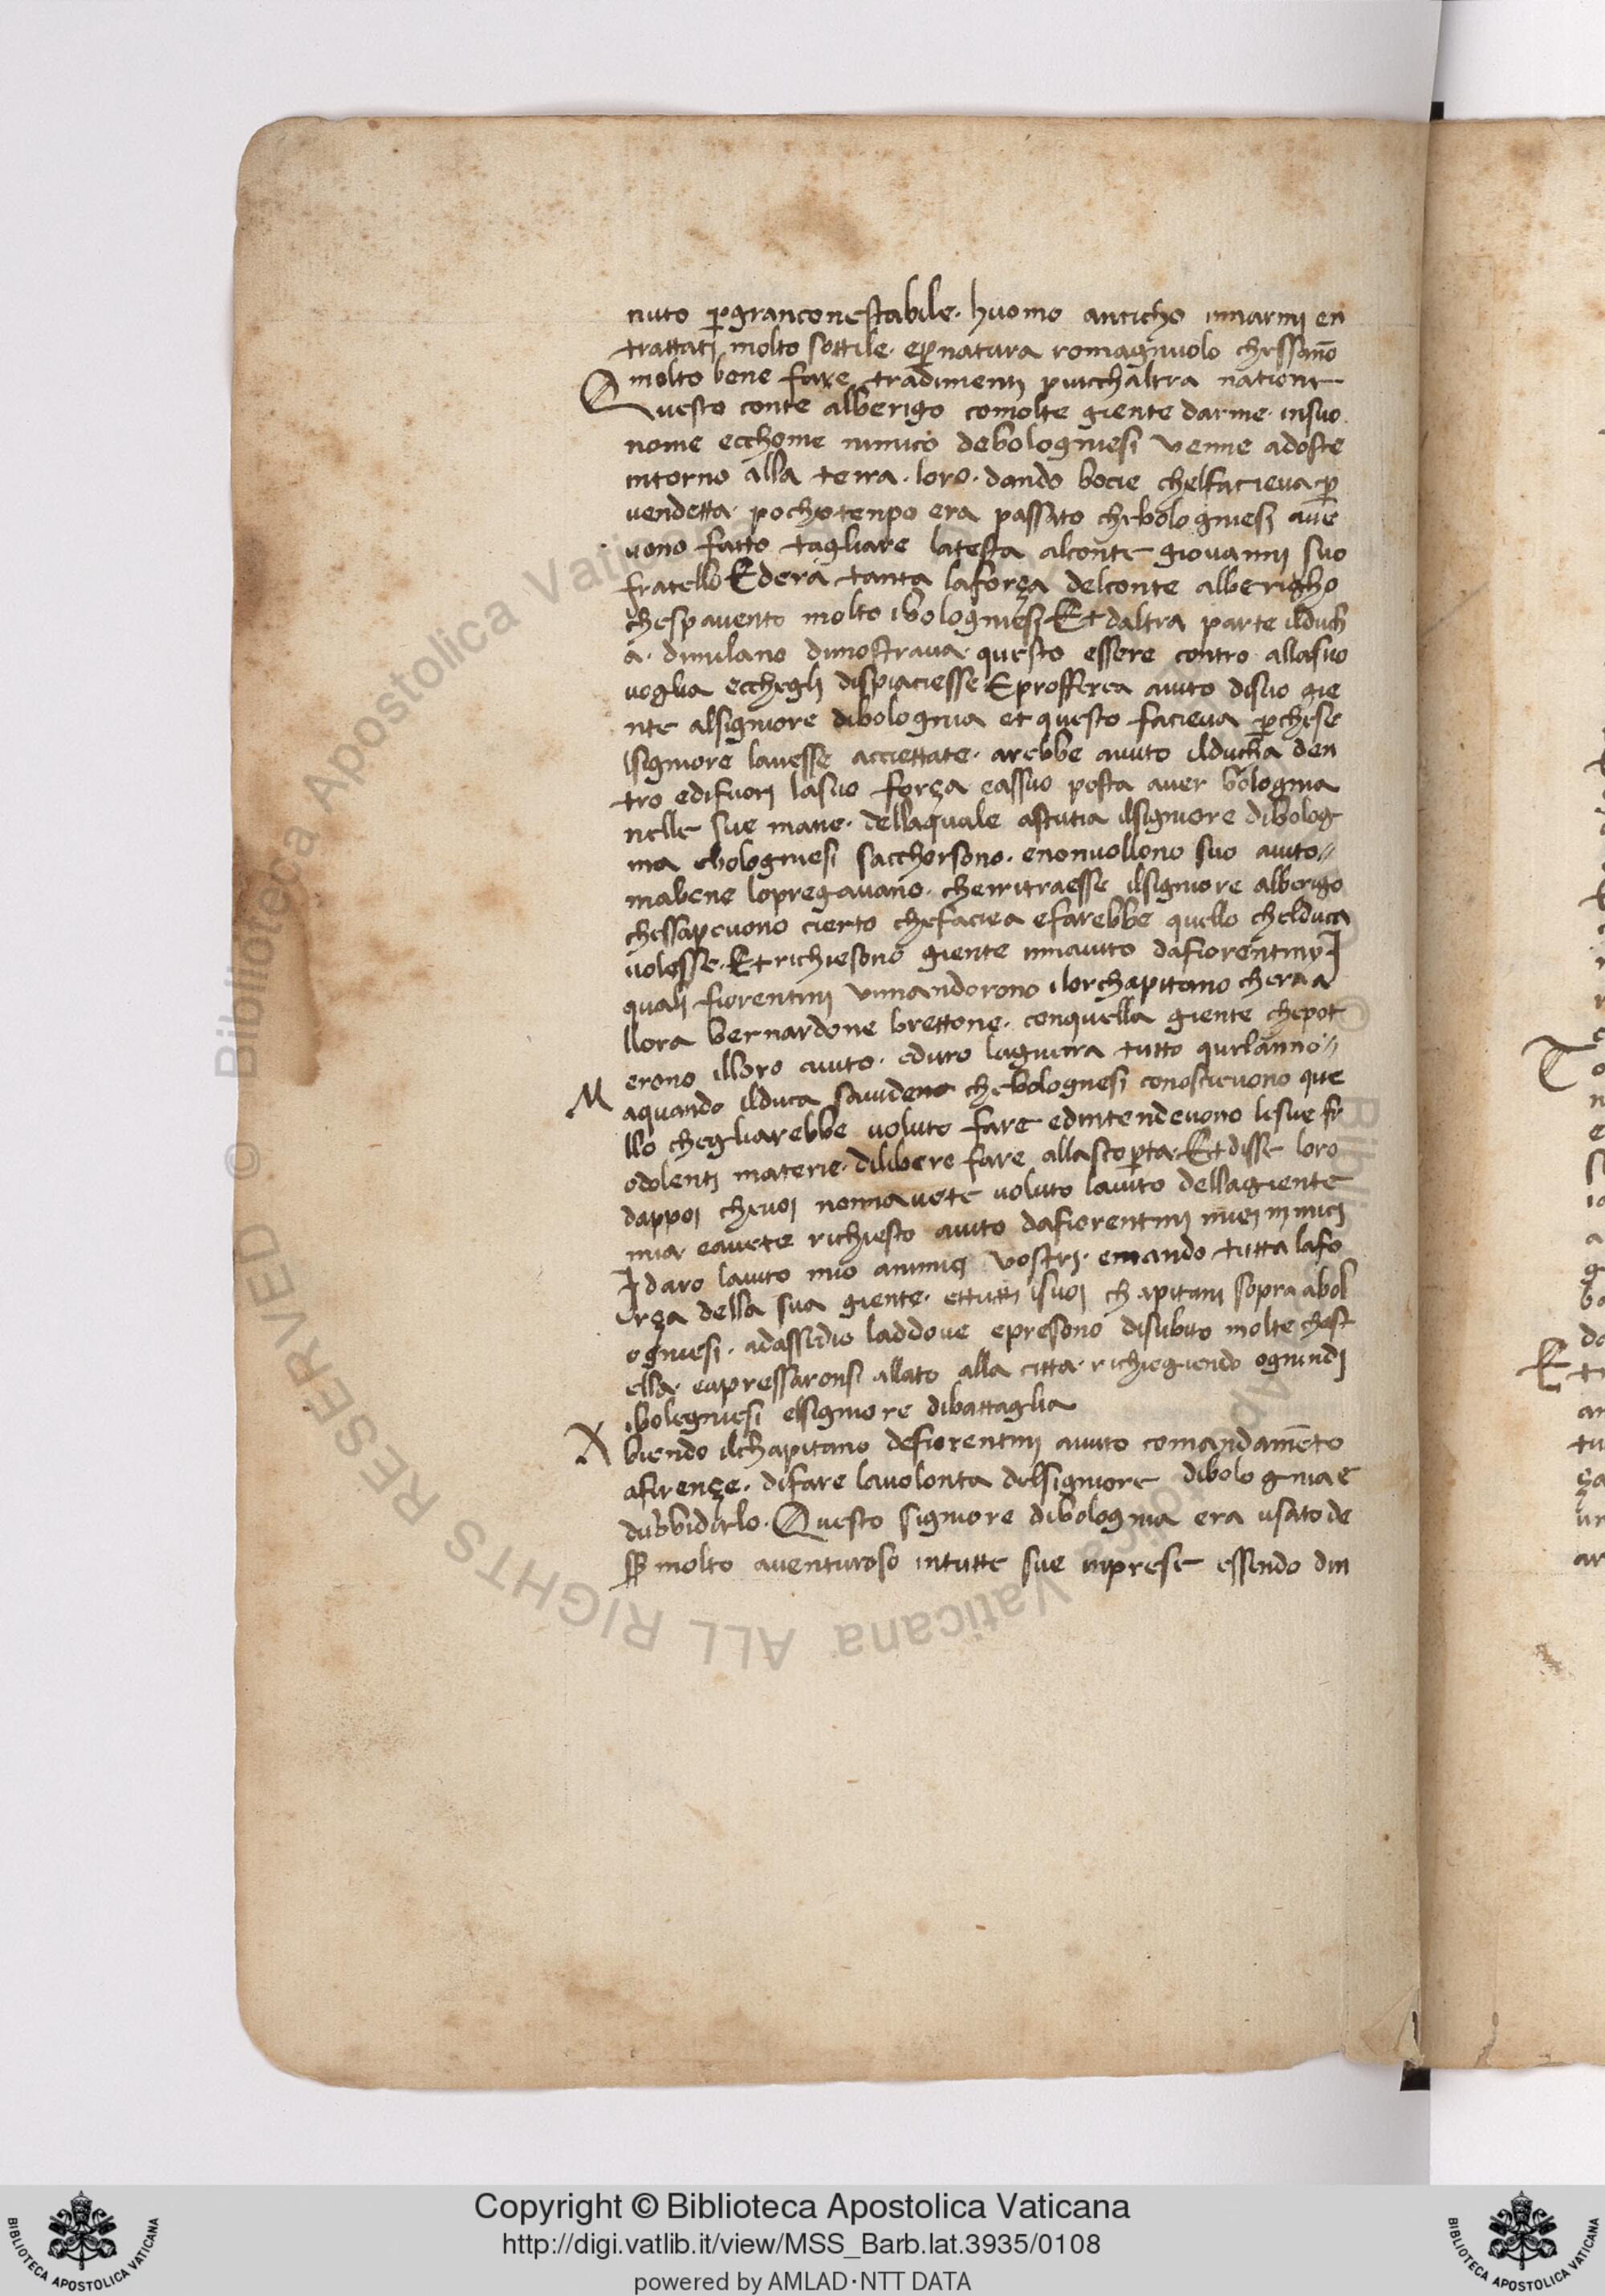 nuto ꝑgranconestabile· huomo anticho innarmj en
trattatj molto sottile· eꝑnatura romagnuolo chessano
molto bene fare tradimentj piucchaltra natione
Questo conte alberigo comolte giente darme· insuo
nome ecchome nimico debologniesi venne adoste
intorno alla terra· loro· dando bocie chelfacieva ꝑ
vendetta· pocho tenpo era passato chebolognesi ave
vono fatto tagliare latesta alconte giovannj suo
fratello Ed era tanta laforça delconte alberigho
chespavento molto ibologniesi Et daltra parte ilduch
a· dimilano dimostrava· questo essere contro· allasuo
voglia ecchegli dispiaciesse E profferea aiuto disuo gie
nte alsigniore dibolognia et questo facieva ꝑchese
lsigniore lavesse acciettate· arebbe avuto ilducha den
tro edifuorj lasuo força eassuo posta aver bolognia
nelle sue mane· dellaquale astutia ilsigniore dibolog
nia ebologniesi sacchorsono· enonvollono suo aiuto//
mabene lopregavano· cheneritraesse ilsigniore alberigo
chessapevono cierto chefaciea efarebbe quello chelduca
volesse· Et richiesono giente innaiuto dafiorentinj I
qualj fiorentinj vimandorono ilorchapitano chera a
llora bernardone brettone· conquella giente chepot
erono illoro aiuto· eduro laguerra tutto quelanno//
Maquando ilduca savidene chebolognesi conoscievono que
llo chegliarebbe voluto fare edintendevono lesue fr
odolentj materie· dilibero fare allascoꝑta· Et disse loro
dappoj chevoj nonnavete voluto laiuto dellagiente
mia· eavete richiesto aiuto dafiorentinj miej nimicj
I daro laiuto mio animicj vostrj· emando tutta lafo
rça della sua giente· ettuttj isuoj chapitanj sopra abol
ogniesi· adassedio laddove epresono disubito molte chast
ella· eapressaronsi allato alla citta· richiegiendo ognindj
ibologniesi elsigniore dibattaglia
Abiendo ilchapitano defiorentinj avuto comandamēto
afirençe· difare lavolonta delsigniore dibolognia e
dubbidirlo· Questo signiore dibolognia era usato de
molto aventuroso intutte sue inprese essendo din
Copyright © Biblioteca Apostolica Vaticana
http://digi.vatlib.it/view/MSS_Barb.lat.3935/0108
powered by AMLAD·NTT DATA
BIBLIOTECA APOSTOLICA VATICANA
BIBLIOTECA APOSTOLICA VATICANA
© Biblioteca Apostolica Vaticana ALL RIGHTS RESERVED